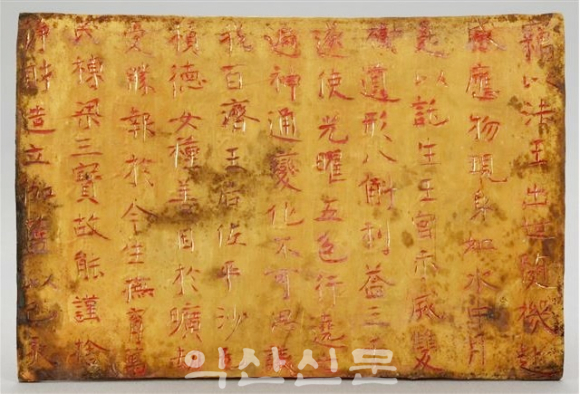 竊以法王出世隨機赴
感應物現身如水中月
是以託生王宮示滅雙
樹遺形八斛利益三千
遂使光曜五色行遶
遍神通變化不可思議
我百濟王后佐平沙乇
積德女種善因於曠劫
受勝報於今生撫育萬
民棟梁三寶故能謹捨
淨財造立伽藍以己亥
익산신문